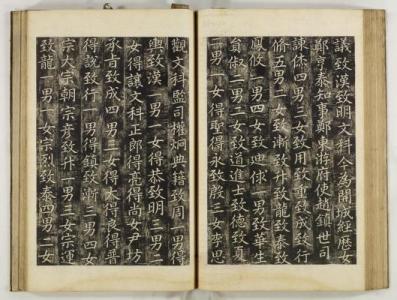 議致漢致明文科今為開城經歷女
鄭亨泰知事鄭東游府使趙鎮世司
諫四男三女致用致重致成致行
脩五男二女致漸致升致龍致泰致
鳳攸一男四女致球一男致華生
翕俶二男二女致道進士致德致夏
二男一女得聖得永致敎三女李思
觀文科監司權烱典籍致周一男得
輿致漢一男一女得恭致明三男二
女得讓文科正郎得亮得尚女尹坊
承吉致成四男三女得太得良得晋
得說致行一男得鎮致漸三男四女
宗大宗朝宗彦致升一男三女宗運
致龍一男一女宗烈致泰四男二女